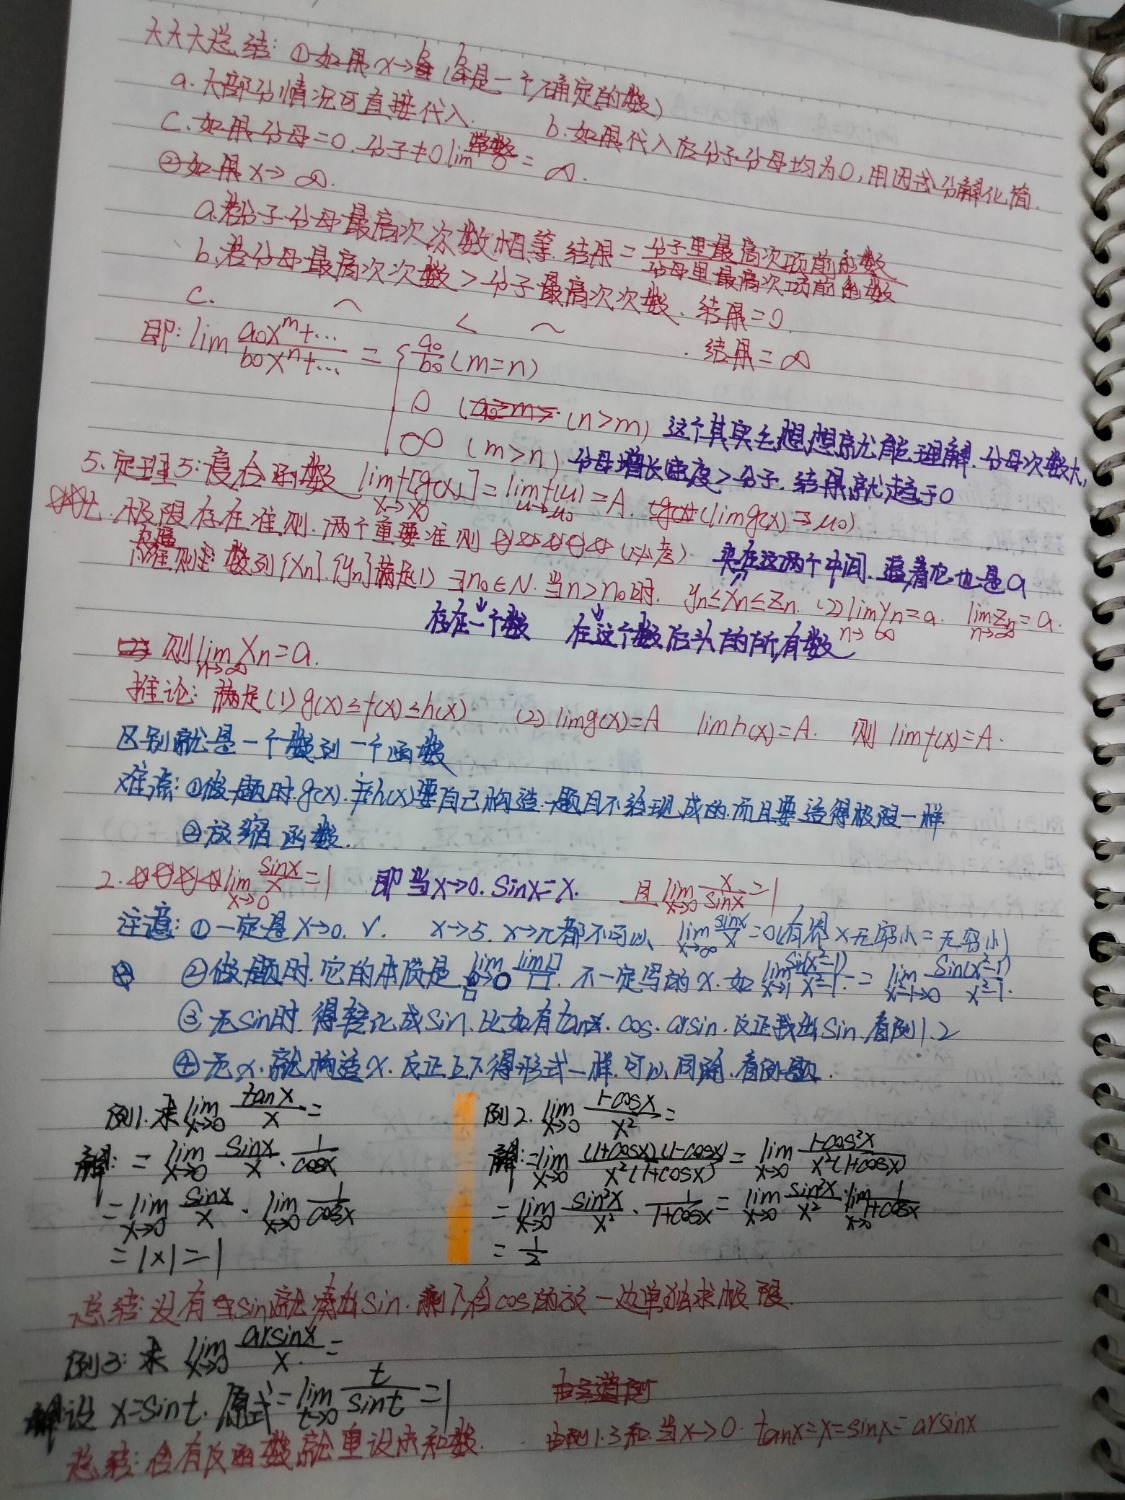 大大大总结: ①如果x→b (b是一个确定的数)
a.大部分情况可直接代入. b.如果代入后分子分母均为0,用因式分解化简.
c.如果分母=0.分子≠0 lim 常数/0 = ∞.
②如果x→∞.
a.若分子分母最高次次数相等.结果=分子里最高次项前的数/分母里最高次项前的数
b.若分母最高次次数>分子最高次次数.结果=0.
c. ~ < ~ .结果=∞
即:lim (a₀x^m+...)/(b₀x^n+...) = { a₀/b₀ (m=n)
0 (n>m) 这个其实去想想就能理解.分母次数大,
∞ (m>n) 分母增长速度>分子.结果就趋于0
5.定理5:复合函数 lim_{x→x₀} f[g(x)]=lim_{u→u₀} f(u)=A. (lim g(x)=u₀)
七.极限存在准则.两个重要准则 (必考) 夹在这两个中间.逼着它也是a
准则 数列{Xn}.{yn}满足1) ∃n₀∈N.当n>n₀时. yn≤Xn≤Zn. (2) lim_{n→∞} yn=a. lim_{n→∞} Zn=a.
存在一个数 在这个数后头的所有数
则lim_{n→∞} Xn=a.
推论:满足(1) g(x)≤f(x)≤h(x) (2) lim g(x)=A lim h(x)=A. 则 lim f(x)=A.
区别就是一个数列一个函数
难点:①做题时.g(x).和h(x)要自己构造.题目不给现成的.而且要造得极限一样
②放缩函数.
2. lim_{x→0} sinx/x=1 即当x→0. sinx=x. 且 lim_{x→0} x/sinx=1
注意:①一定是x→0.√. x→5.x→π都不可以. lim_{x→∞} sinx/x=0(有界×无穷小=无穷小)
②做题时.它的本质是 lim_{□→0} lim□/□. 不一定写的x.如 lim_{x→1} sin(x²-1)/x²-1. = lim_{x-1→0} sin(x²-1)/x²-1.
③无sin时.得转化成sin.比如有tanx.cos.arsin.反正我出sin.看例1.2
④无x.就构造x.反正上下得形式一样.可以同除.看例题.
例1.求 lim_{x→0} tanx/x = 例2. lim_{x→0} 1-cosx/x² =
解: = lim_{x→0} sinx/x · 1/cosx 解:=lim_{x→0} (1+cosx)(1-cosx)/x²(1+cosx) = lim_{x→0} 1-cos²x/x²(1+cosx)
= lim_{x→0} sinx/x · lim_{x→0} 1/cosx = lim_{x→0} sin²x/x² · 1/1+cosx = lim_{x→0} sin²x/x² · lim_{x→0} 1/1+cosx
= 1×1=1 = 1/2
总结:没有sin就凑出sin.剩下含cos的放一边单独求极限.
例3:求 lim_{x→0} arsinx/x. =
解设 x=sint. 原式=lim_{t→0} t/sint=1
总结:含有反函数就重设成和数. 由例1.3和.当x→0. tanx=x=sinx=arsinx